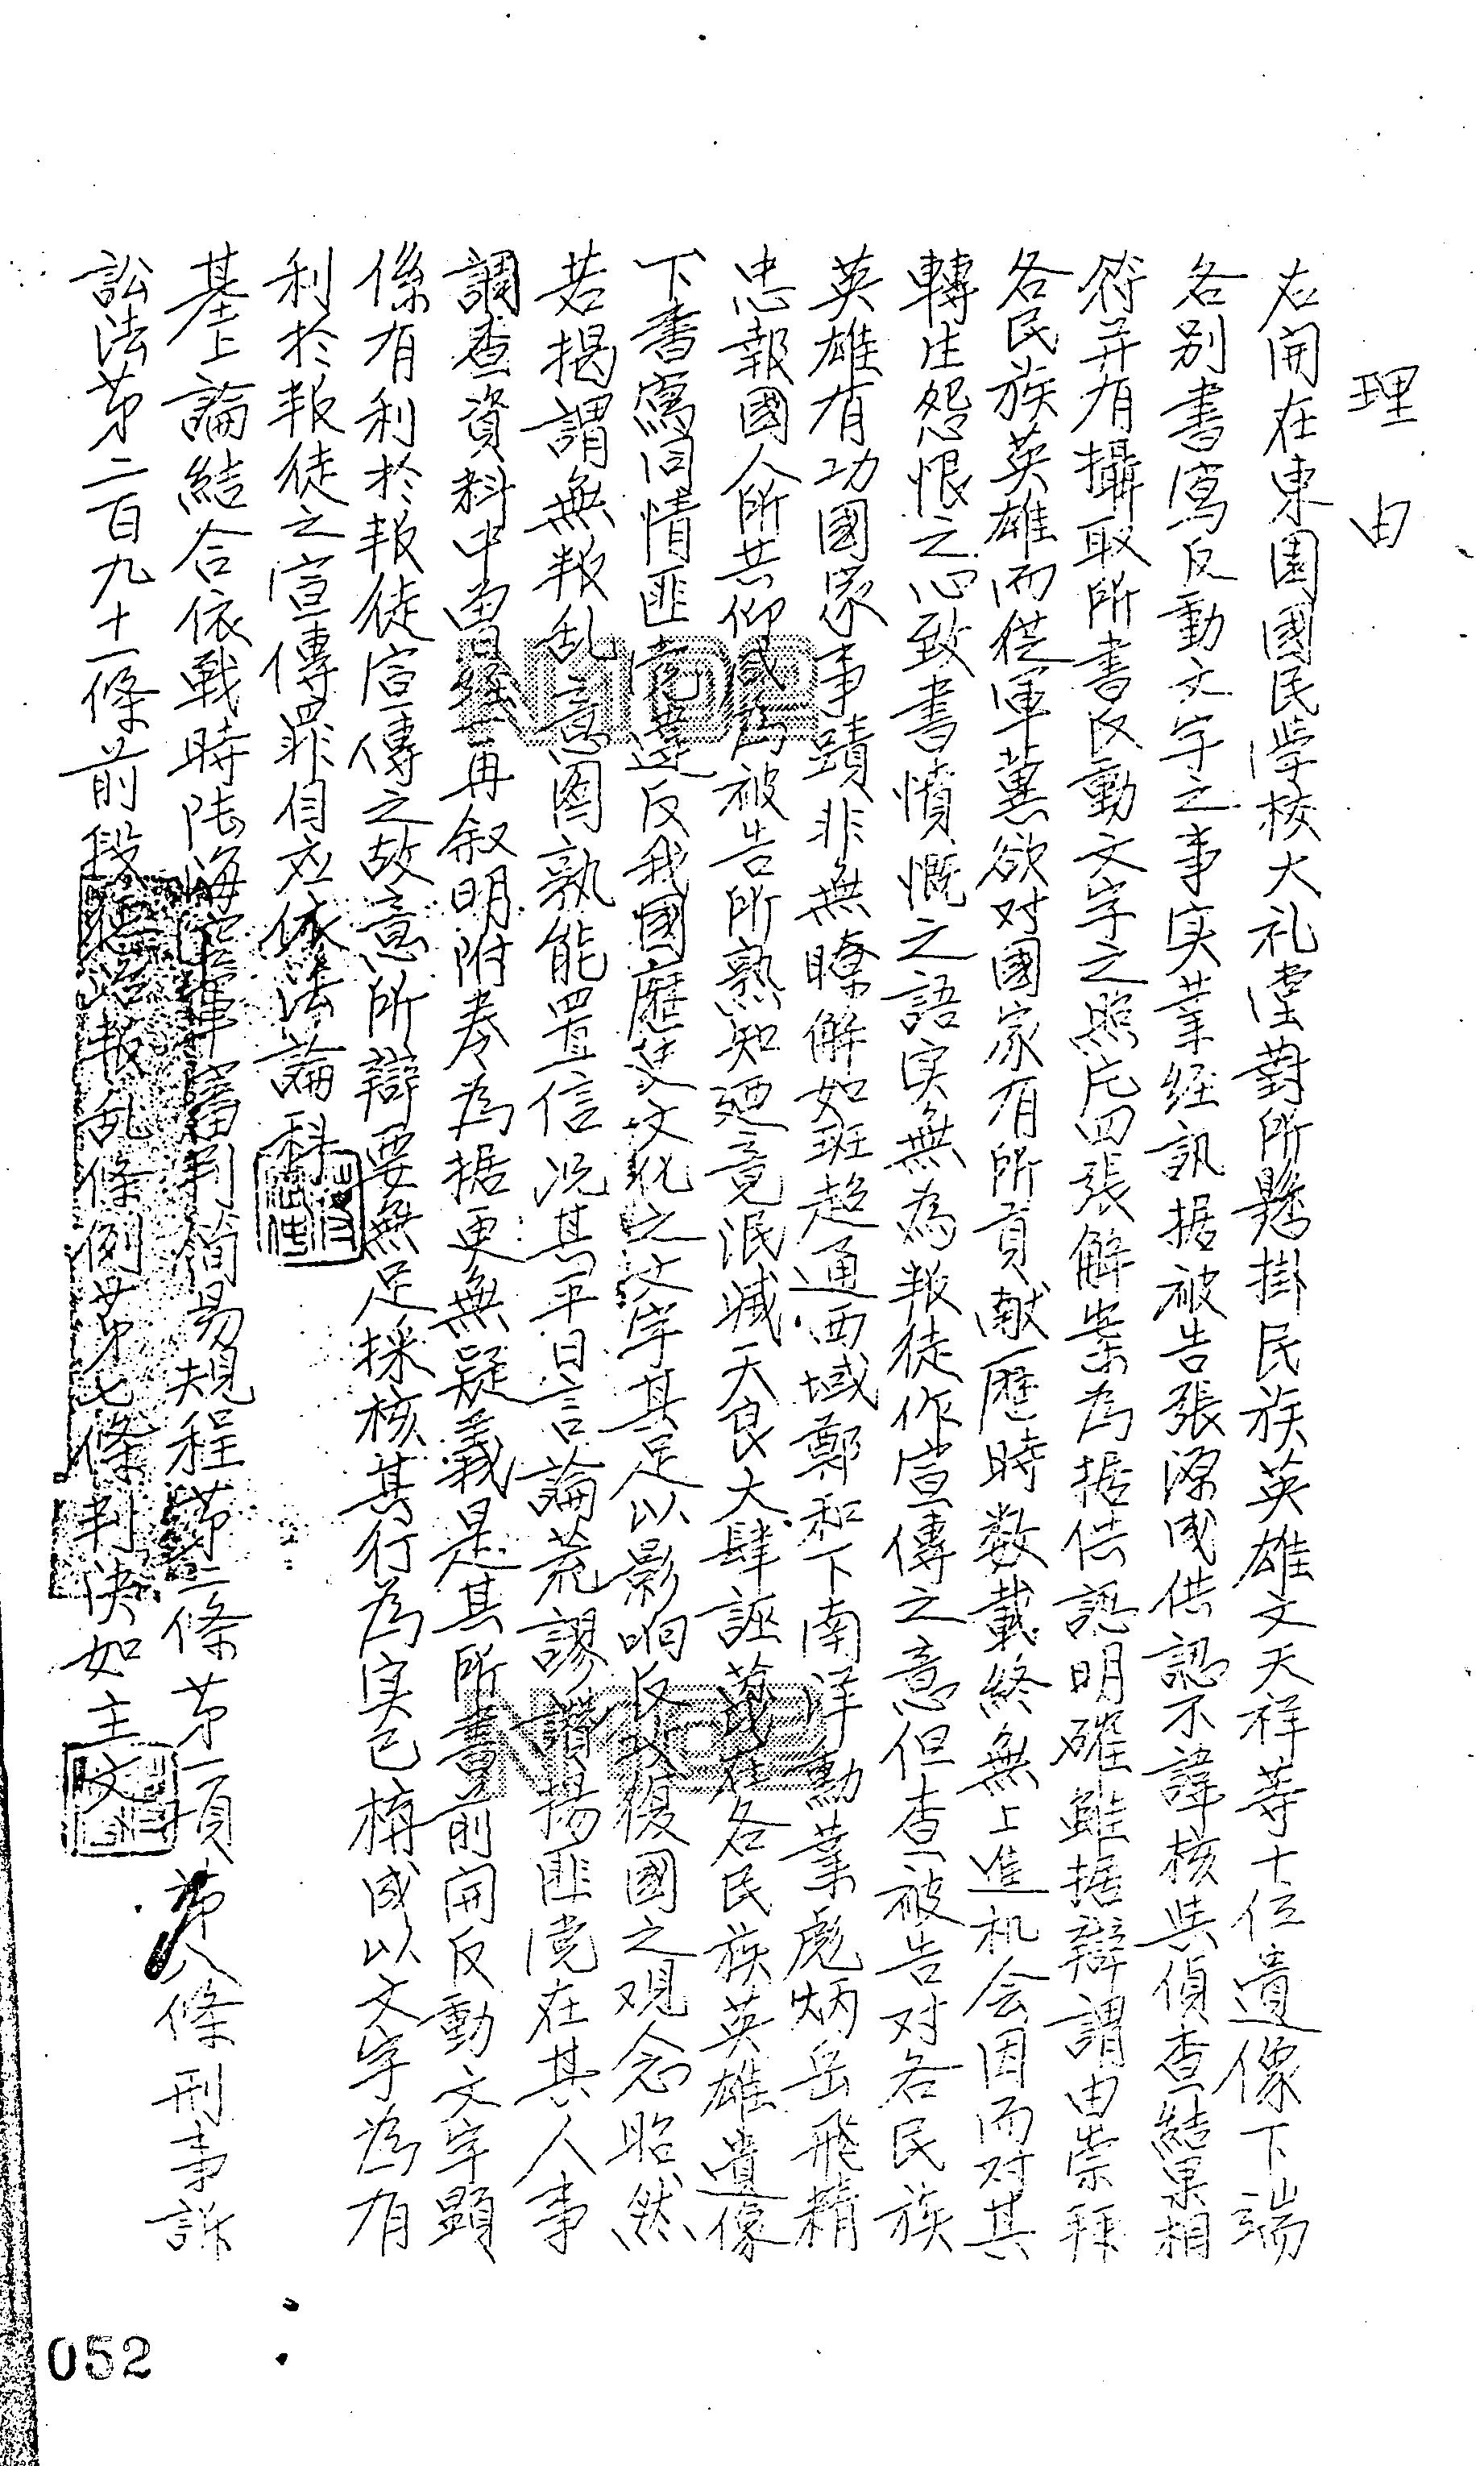 理由
右開在東園國民学校大礼堂對所懸掛民族英雄文天祥等十位遺像下端
各別書寫反動文字之事实業经訊据被告張源成供認不諱核与偵查結果相
符并有攝取所書反動文字之照片四張解案為据供認明確雖据辯謂由崇拜
各民族英雄而従軍蕲欲对國家有所貢献歷時数載終無上進机会因而对其
轉生怨恨之心致書憤慨之語实無為叛徒作宣傳之意但查被告对各民族
英雄有功國家事蹟非無瞭解如班超通西域鄭和下南洋勳業彪炳岳飛精
忠報國人所共仰咸為被告所熟知廼竟泯滅天良大肆誣蔑在各民族英雄遺像
下書寫同情匪党違反我國歷史文化之文字其足以影响反攻復國之观念昭然
若揭謂無叛乱意图孰能置信况其平日言論荒謬讚揚匪党在其人事
調查資料中曾经一再叙明附卷為据更無疑義是其所書前開反動文字顕
係有利於叛徒宣傳之故意所辯要無足採核其行為实已構成以文字為有
利於叛徒之宣傳罪自应依法論科
基上論結合依戰時陸海空軍審判简易規程第二條第一項第八條刑事訴
訟法第二百九十一條前段懲治叛乱條例第七條判决如主文
052